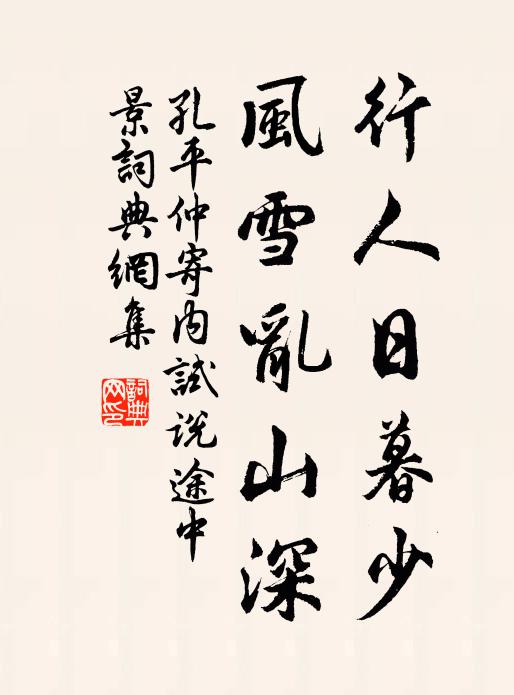 行人日暮少
風雪亂山深
孔平仲寄内試説途中
景詞典網集
詞典網印